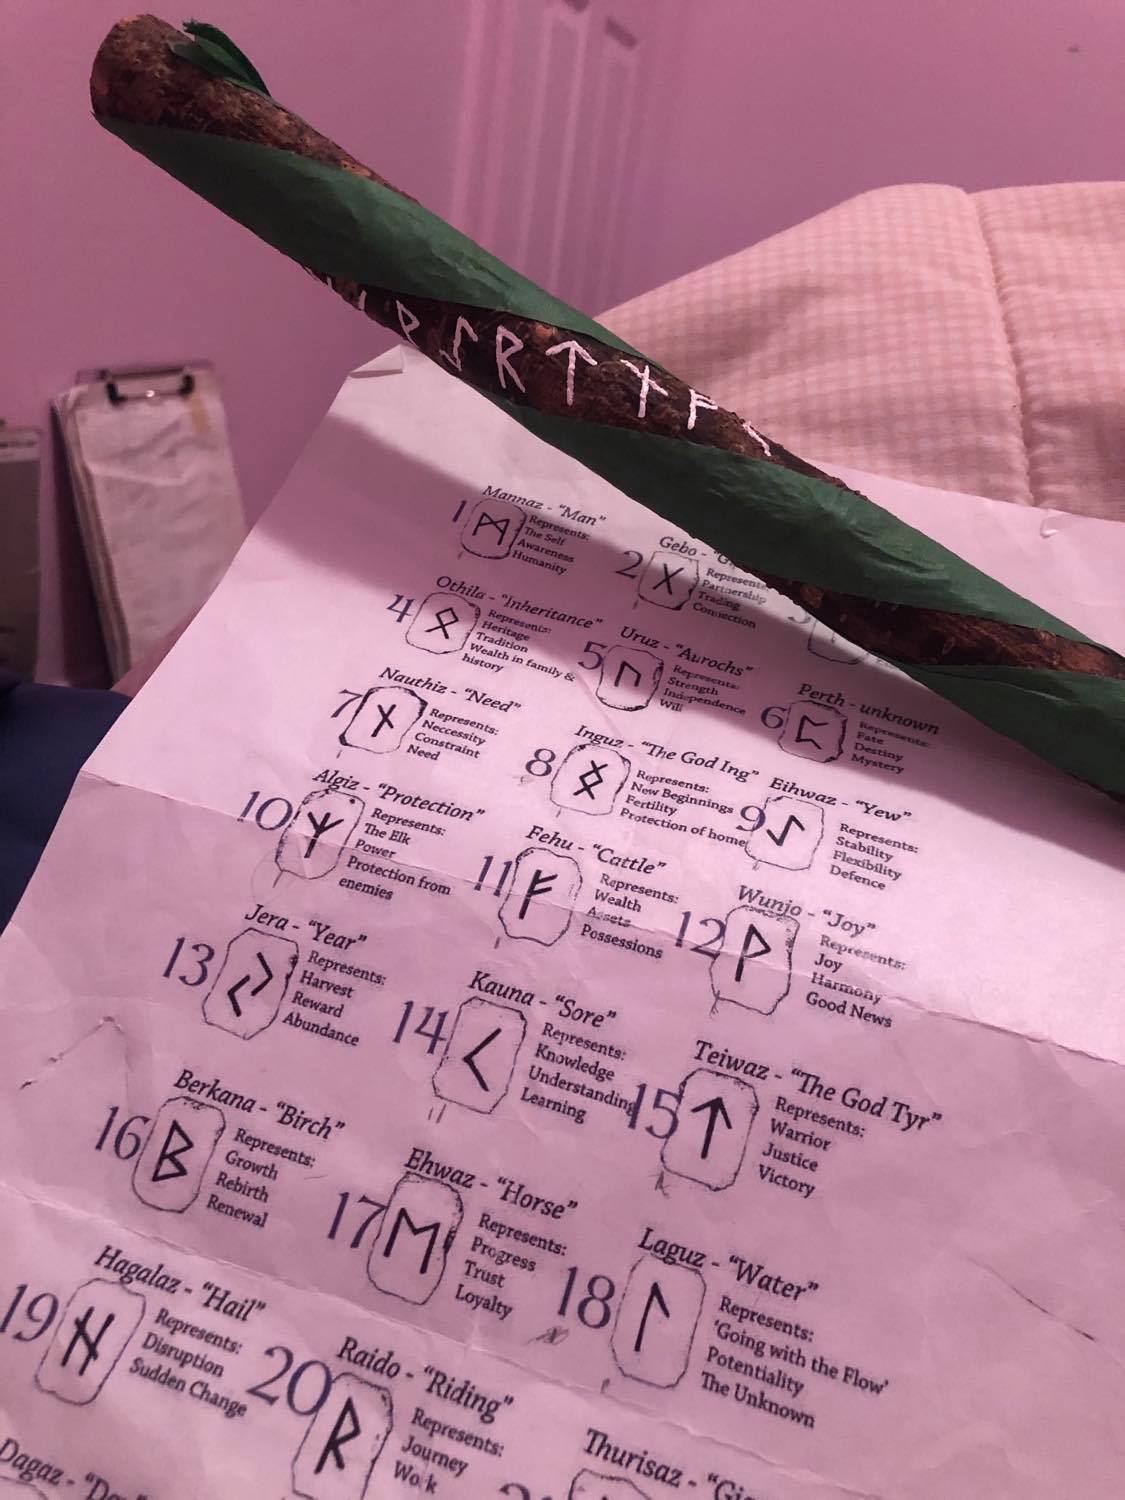 ᚹᛇᚱᛏᚾᚨ
Mannaz - "Man"
1 ᛗ Represents:
The Self
Awareness
Humanity
Gebo -
2 ᚷ Represents:
Partnership
Trading
Connection
Othila - "Inheritance"
4 ᛟ Represents:
Heritage
Tradition
Wealth in family &
history
Uruz - "Aurochs"
5 ᚢ Represents:
Strength
Independence
Will
Perth - unknown
6 ᛈ Represents:
Fate
Destiny
Mystery
Nauthiz - "Need"
7 ᚾ Represents:
Neccessity
Constraint
Need
Inguz - "The God Ing"
8 ᛝ Represents:
New Beginnings
Fertility
Protection of home
Eihwaz - "Yew"
9 ᛇ Represents:
Stability
Flexibility
Defence
Algiz - "Protection"
10 ᛉ Represents:
The Elk
Power
Protection from
enemies
Fehu - "Cattle"
11 ᚠ Represents:
Wealth
Assets
Possessions
Wunjo - "Joy"
12 ᚹ Represents:
Joy
Harmony
Good News
Jera - "Year"
13 ᛃ Represents:
Harvest
Reward
Abundance
Kauna - "Sore"
14 ᚲ Represents:
Knowledge
Understanding
Learning
Teiwaz - "The God Tyr"
15 ᛏ Represents:
Warrior
Justice
Victory
Berkana - "Birch"
16 ᛒ Represents:
Growth
Rebirth
Renewal
Ehwaz - "Horse"
17 ᛖ Represents:
Progress
Trust
Loyalty
Laguz - "Water"
18 ᛚ Represents:
'Going with the Flow'
Potentiality
The Unknown
Hagalaz - "Hail"
19 ᚺ Represents:
Disruption
Sudden Change
Raido - "Riding"
20 ᚱ Represents:
Journey
Work
Thurisaz -
Dagaz -